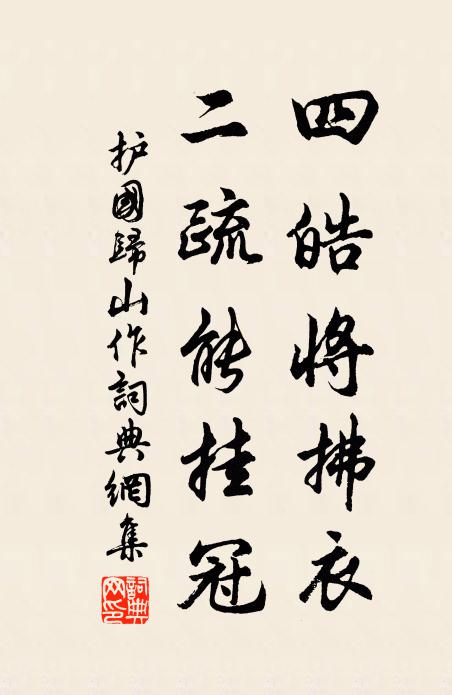 四皓将拂衣
二疏能挂冠
护國歸山作詞典網集
詞典网印